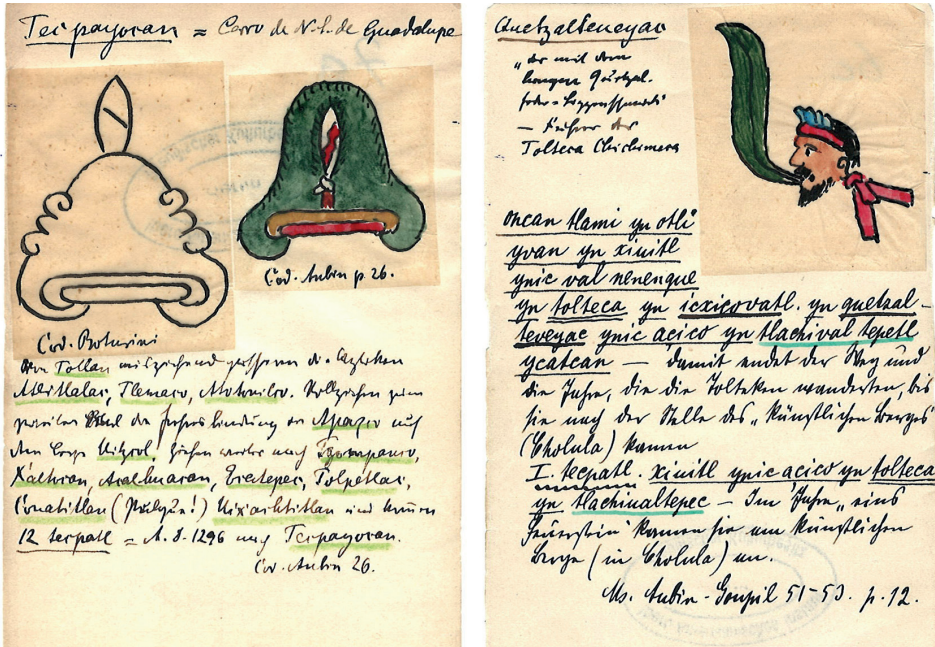 Tecpayocan = Cerro de N. S. de Guadalupe
Cod. Aubin p 26.
Cod. Boturini
Von Tollan ausziehend passieren die Azteken
Atlitlalac, Tlemaco, Atotonilco. Vollziehen zum
zweiten Mal die Jahresbindung in Apazco auf
dem Berge Uitzcol, ziehen weiter nach Tzompanco,
Xaltocan, Acalhuacan, Ecatepec, Tolpetlac,
Couatitlan ( ) Uixachtitlan und kommen
12 tecpatl = A. D. 1296 nach Tecpayocan.
Cod. Aubin 26.
Quetzalteueyac
"der mit dem
langen Quetzal
feder-
— Führer der
Tolteca Chichimeca
oncan tlami yn otli
yvan yn xiuitl
ynic val nenenque
yn tolteca yn icxicovatl. yn quetzal-
teveyac ynic acico yn tlachival tepetl
ycatcan — damit endet der Weg und
die Jahre, die die Tolteken wanderten, bis
sie nach der Stelle des "künstlichen Berges"
(Cholula) kamen
I. tecpatl. xiuitl ynic acico yn tolteca
yn tlachiualtepec — Im Jahre "eins
Feuerstein" kamen sie am künstlichen
Berge (in Cholula) an.
Ms. Aubin-Goupil 51-53. p. 12.